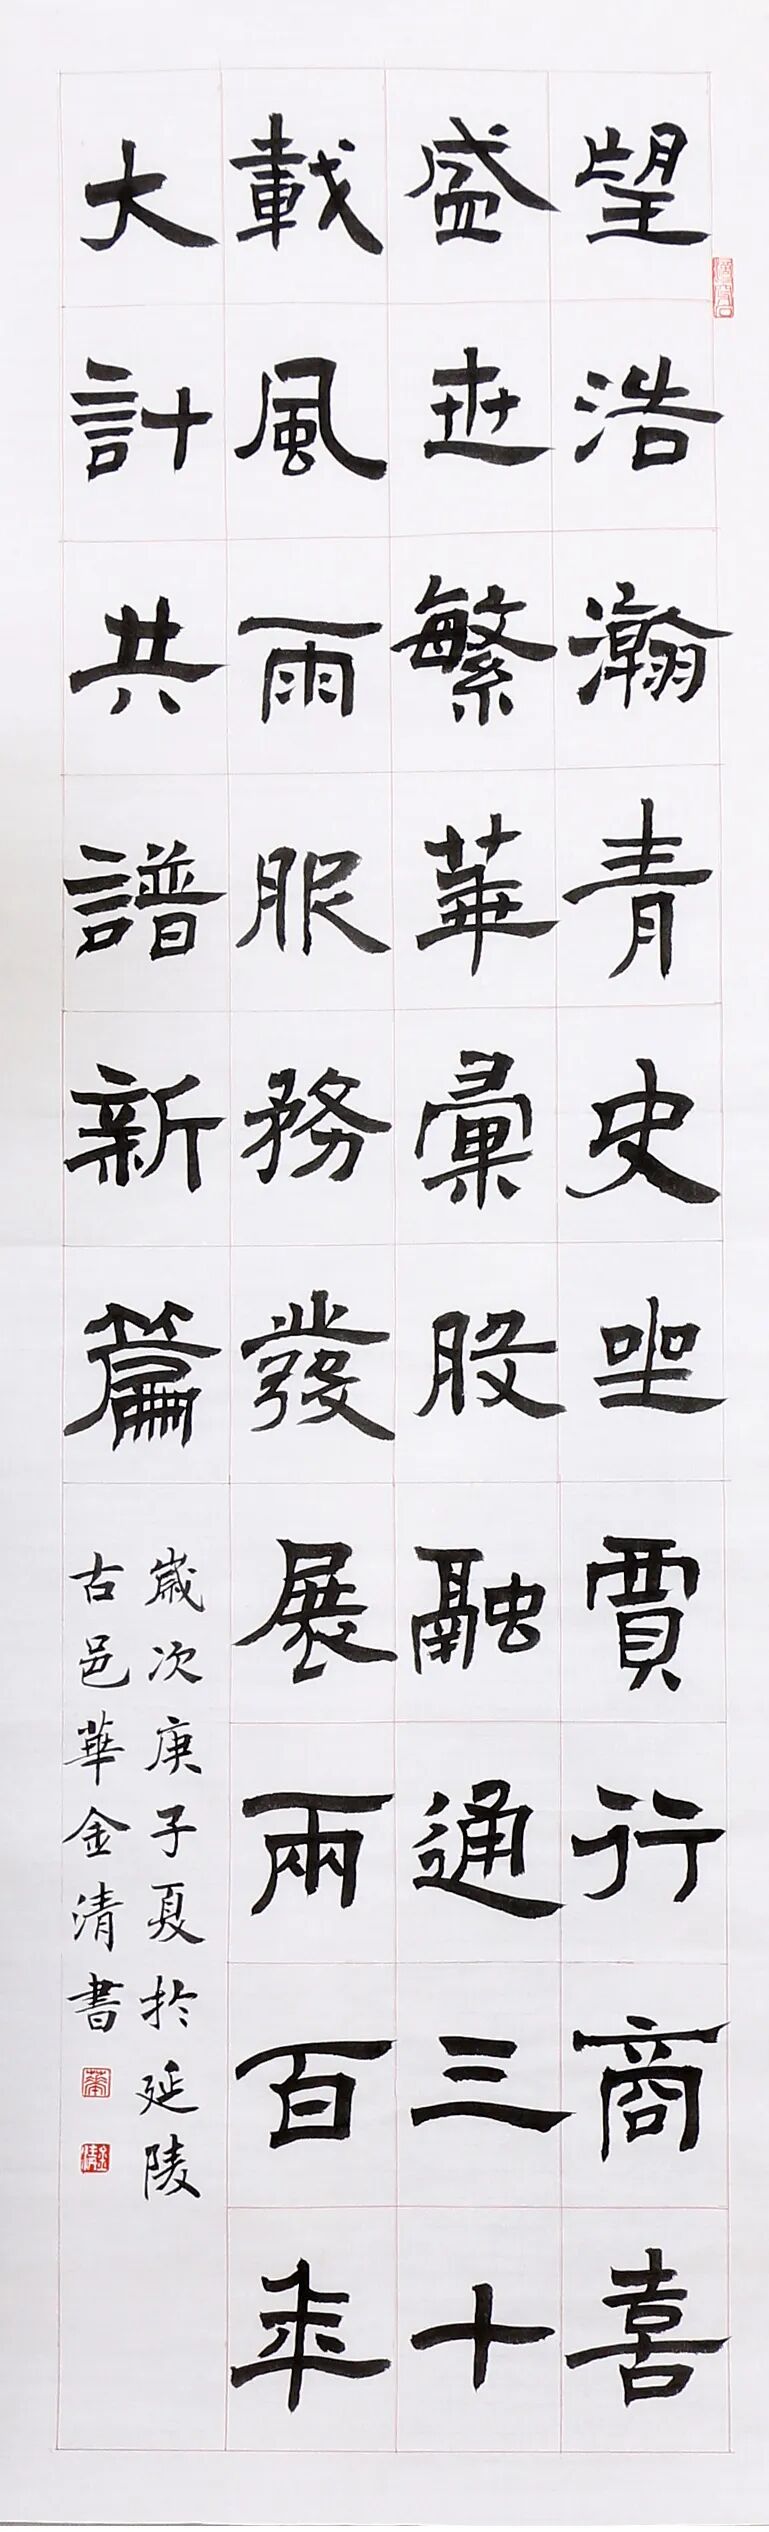 望浩瀚青史坐賈行商喜
盛世繁華彙股融通三十
載風雨服務發展兩百年
大計共譜新篇
歲次庚子夏於延陵
古邑華金清書